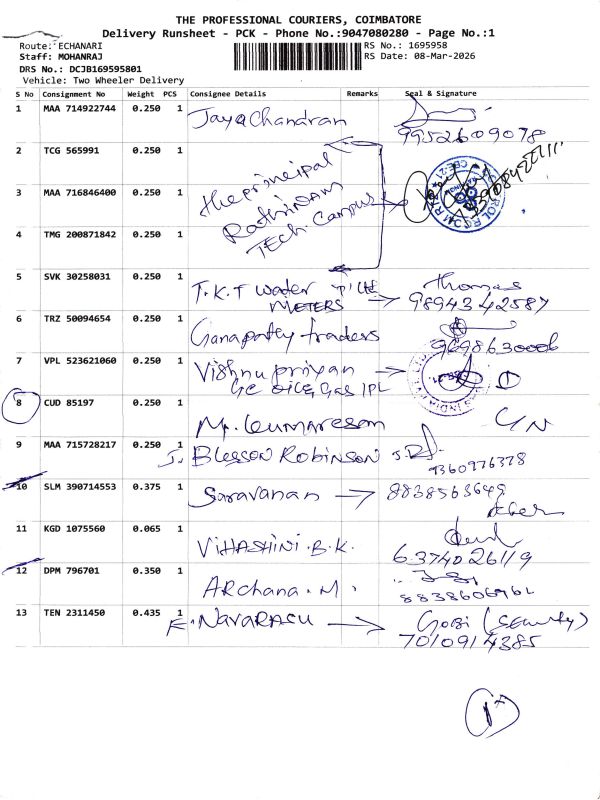 THE PROFESSIONAL COURIERS, COIMBATORE
Delivery Runsheet - PCK - Phone No.:9047080280 - Page No.:1
Route: ECHANARI
RS No.: 1695958
Staff: MOHANRAJ
RS Date: 08-Mar-2026
DRS No.: DCJB169595801
Vehicle: Two Wheeler Delivery
S No Consignment No Weight PCS Consignee Details Remarks Seal & Signature
1 MAA 714922744 0.250 1 Jayachandran
9952609078
2 TCG 565991 0.250 1
the principal
3 MAA 716846400 0.250 1
Rathinam
TECH. Campus
4 TMG 200871842 0.250 1
5 SVK 30258031 0.250 1 T.K.T water P. Ltd Thomas
METERS 9894342587
6 TRZ 50094654 0.250 1 Ganapathy traders
9698630006
7 VPL 523621060 0.250 1 Vishnu priyan
GE OIL & Gas IPL
8 CUD 85197 0.250 1 M. Kumaresan
9 MAA 715728217 0.250 1 J. Blesson Robinson
9360976378
10 SLM 390714553 0.375 1 Saravanan 8838563649
11 KGD 1075560 0.065 1 VIHASHINI. B. K.
6374026119
12 DPM 796701 0.350 1 ARchana. M.
13 TEN 2311450 0.435 1 K. NAVARASU Gobi (Security)
7010914385